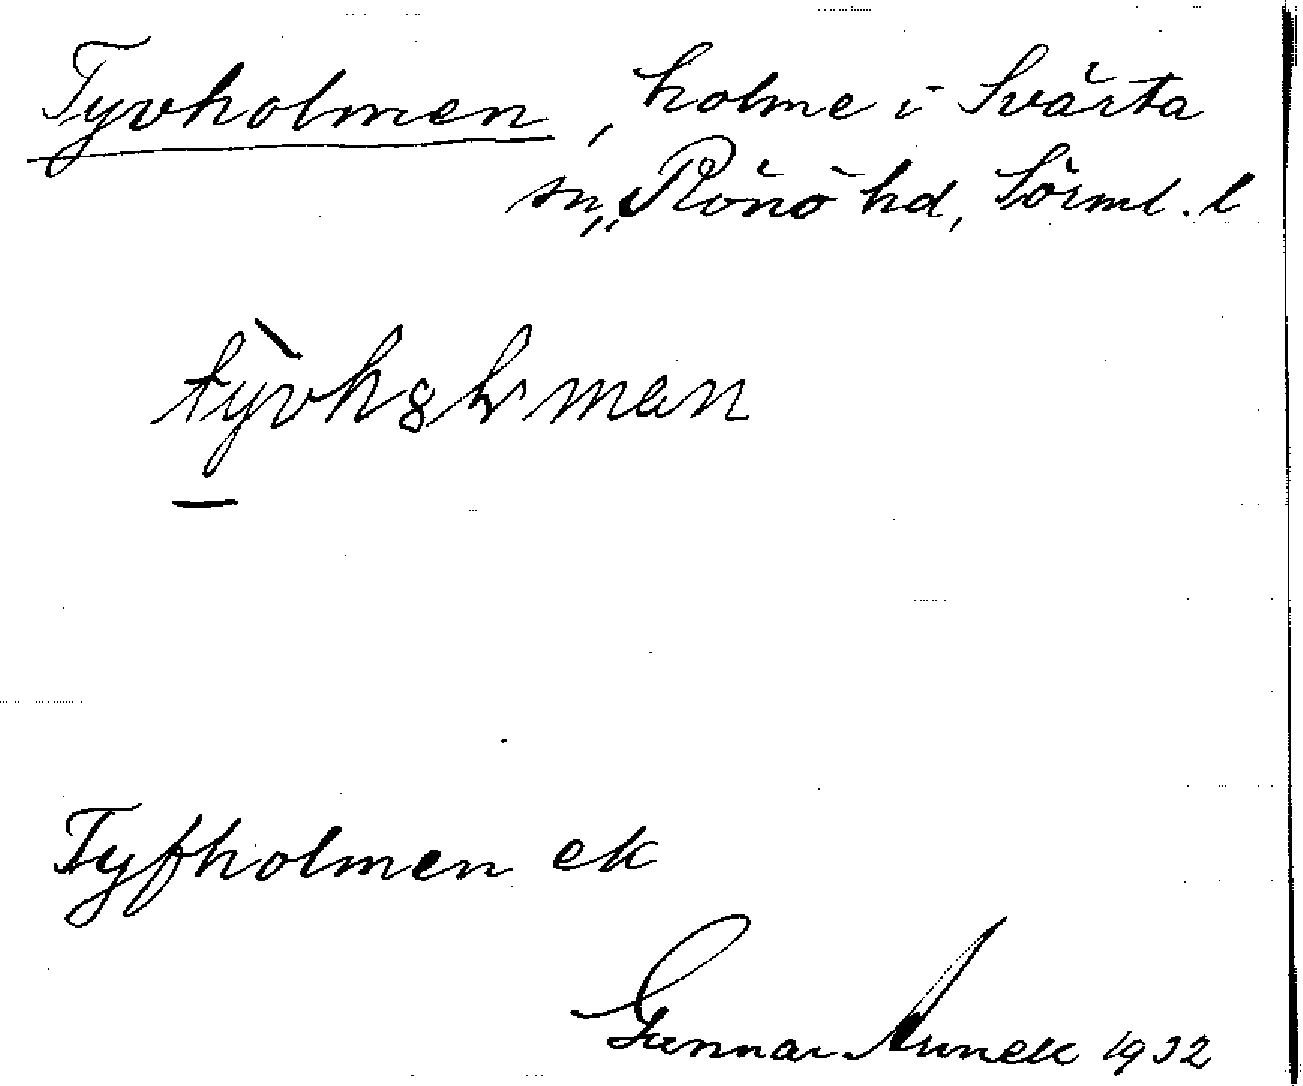 Tyvholmen, holme i Svärta
sn, Rönö hd, Sörml. l
tỳvhɷlmen
Tyfholmen ek
Gunnar 1932